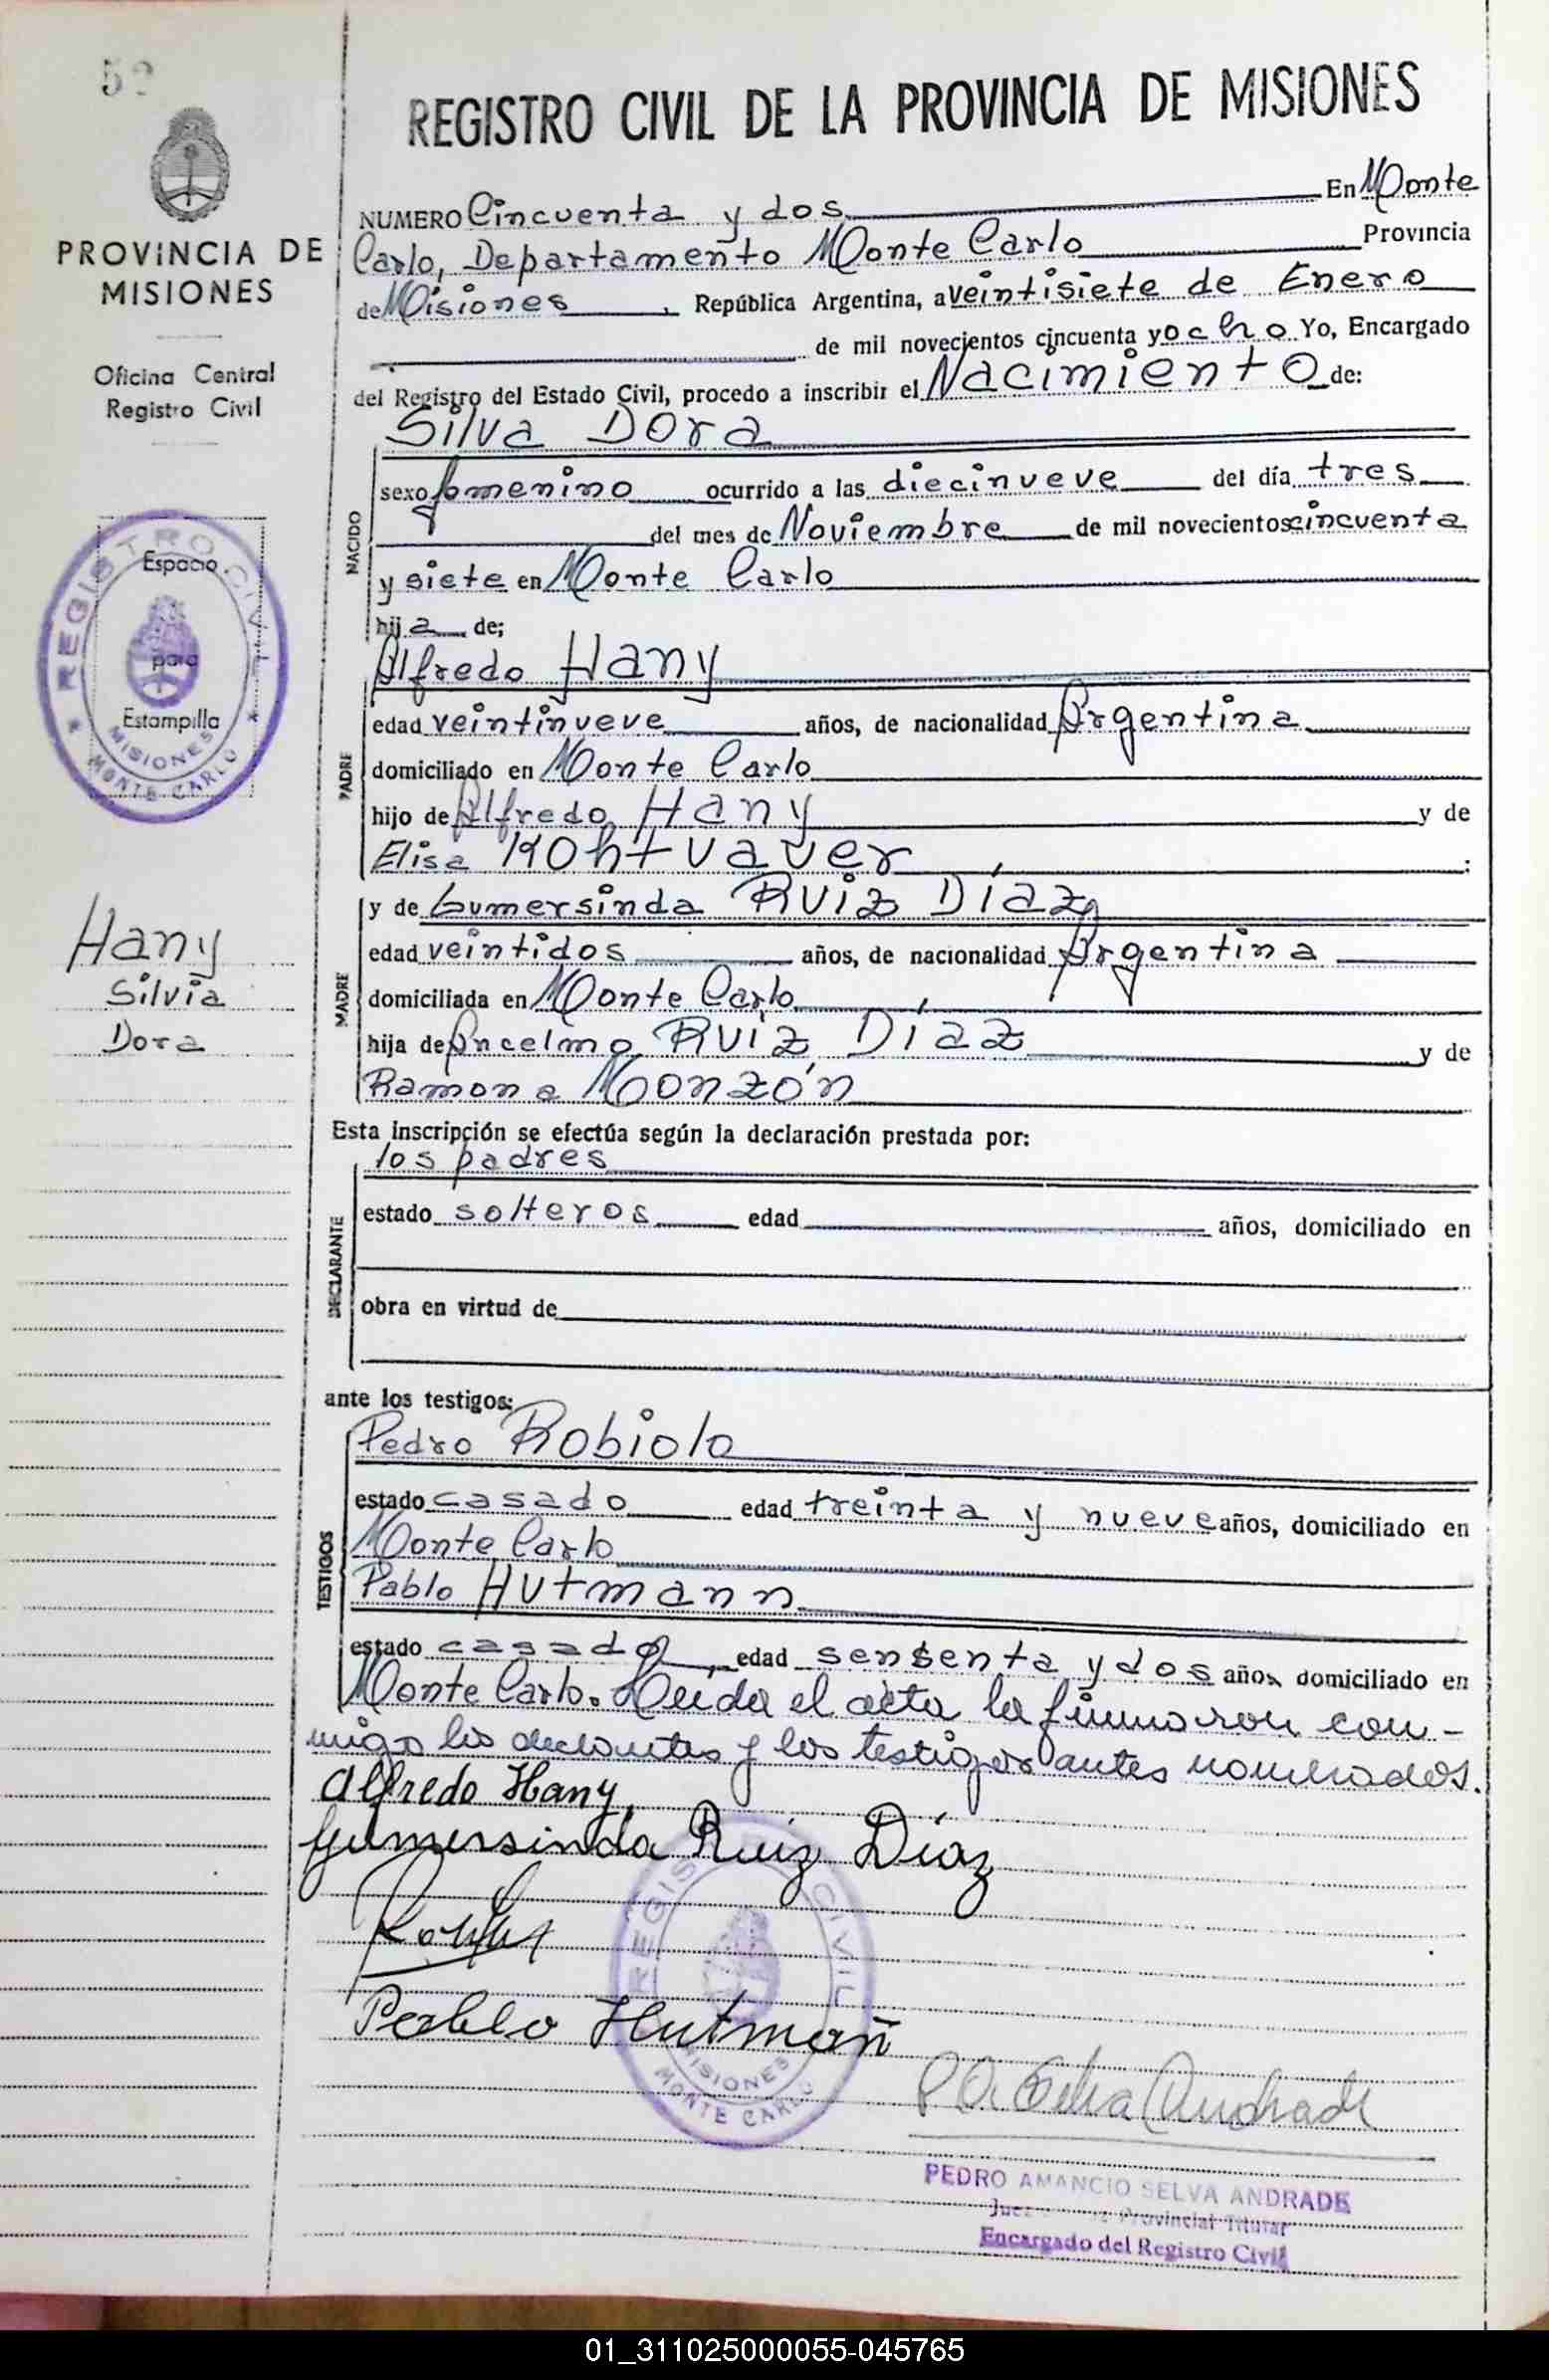 52
PROVINCIA DE
MISIONES
Oficina Central
Registro Civil
REGISTRO CIVIL
Espacio
para
Estampilla
MISIONES
MONTE CARLO
Hany
Silvia
Dora
REGISTRO CIVIL DE LA PROVINCIA DE MISIONES
NUMERO Cincuenta y dos En Monte
Carlo, Departamento Monte Carlo Provincia
de Misiones, República Argentina, a veintisiete de Enero
de mil novecientos cincuenta y ocho Yo, Encargado
del Registro del Estado Civil, procedo a inscribir el Nacimiento de:
Silva Dora
NACIDO
sexo femenino ocurrido a las diecinueve del día tres
del mes de Noviembre de mil novecientos cincuenta
y siete en Monte Carlo
hija de;
Alfredo Hany
PADRE
edad veintinueve años, de nacionalidad Argentina
domiciliado en Monte Carlo
hijo de Alfredo Hany y de
Elisa Kohtvaver ;
MADRE
y de Gumersinda Ruiz Díaz
edad veintidos años, de nacionalidad Argentina
domiciliada en Monte Carlo
hija de Ancelmo Ruíz Díaz y de
Ramona Monzón
Esta inscripción se efectúa según la declaración prestada por:
los padres
DECLARANTE
estado solteros edad años, domiciliado en
obra en virtud de
ante los testigos:
Pedro Robiolo
TESTIGOS
estado casado edad treinta y nueve años, domiciliado en
Monte Carlo
Pablo Hutmann
estado casado, edad sensenta y dos años, domiciliado en
Monte Carlo. Leída el acta la firmaron con-
migo los declarantes y los testigos antes nombrados.
Alfredo Hany,
Gumersinda Ruiz Díaz
Pablo Hutmañ
REGISTRO CIVIL
MISIONES
MONTE CARLO
P. A. Selva Andrade
PEDRO AMANCIO SELVA ANDRADE
Juez Provincial Titular
Encargado del Registro Civil
01_311025000055-045765